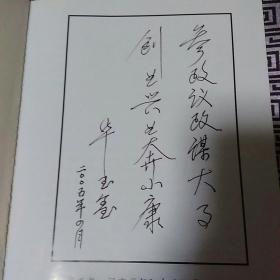 参政议政谋大事
创业兴业奔小康
华玉鑫
二〇〇五年四月